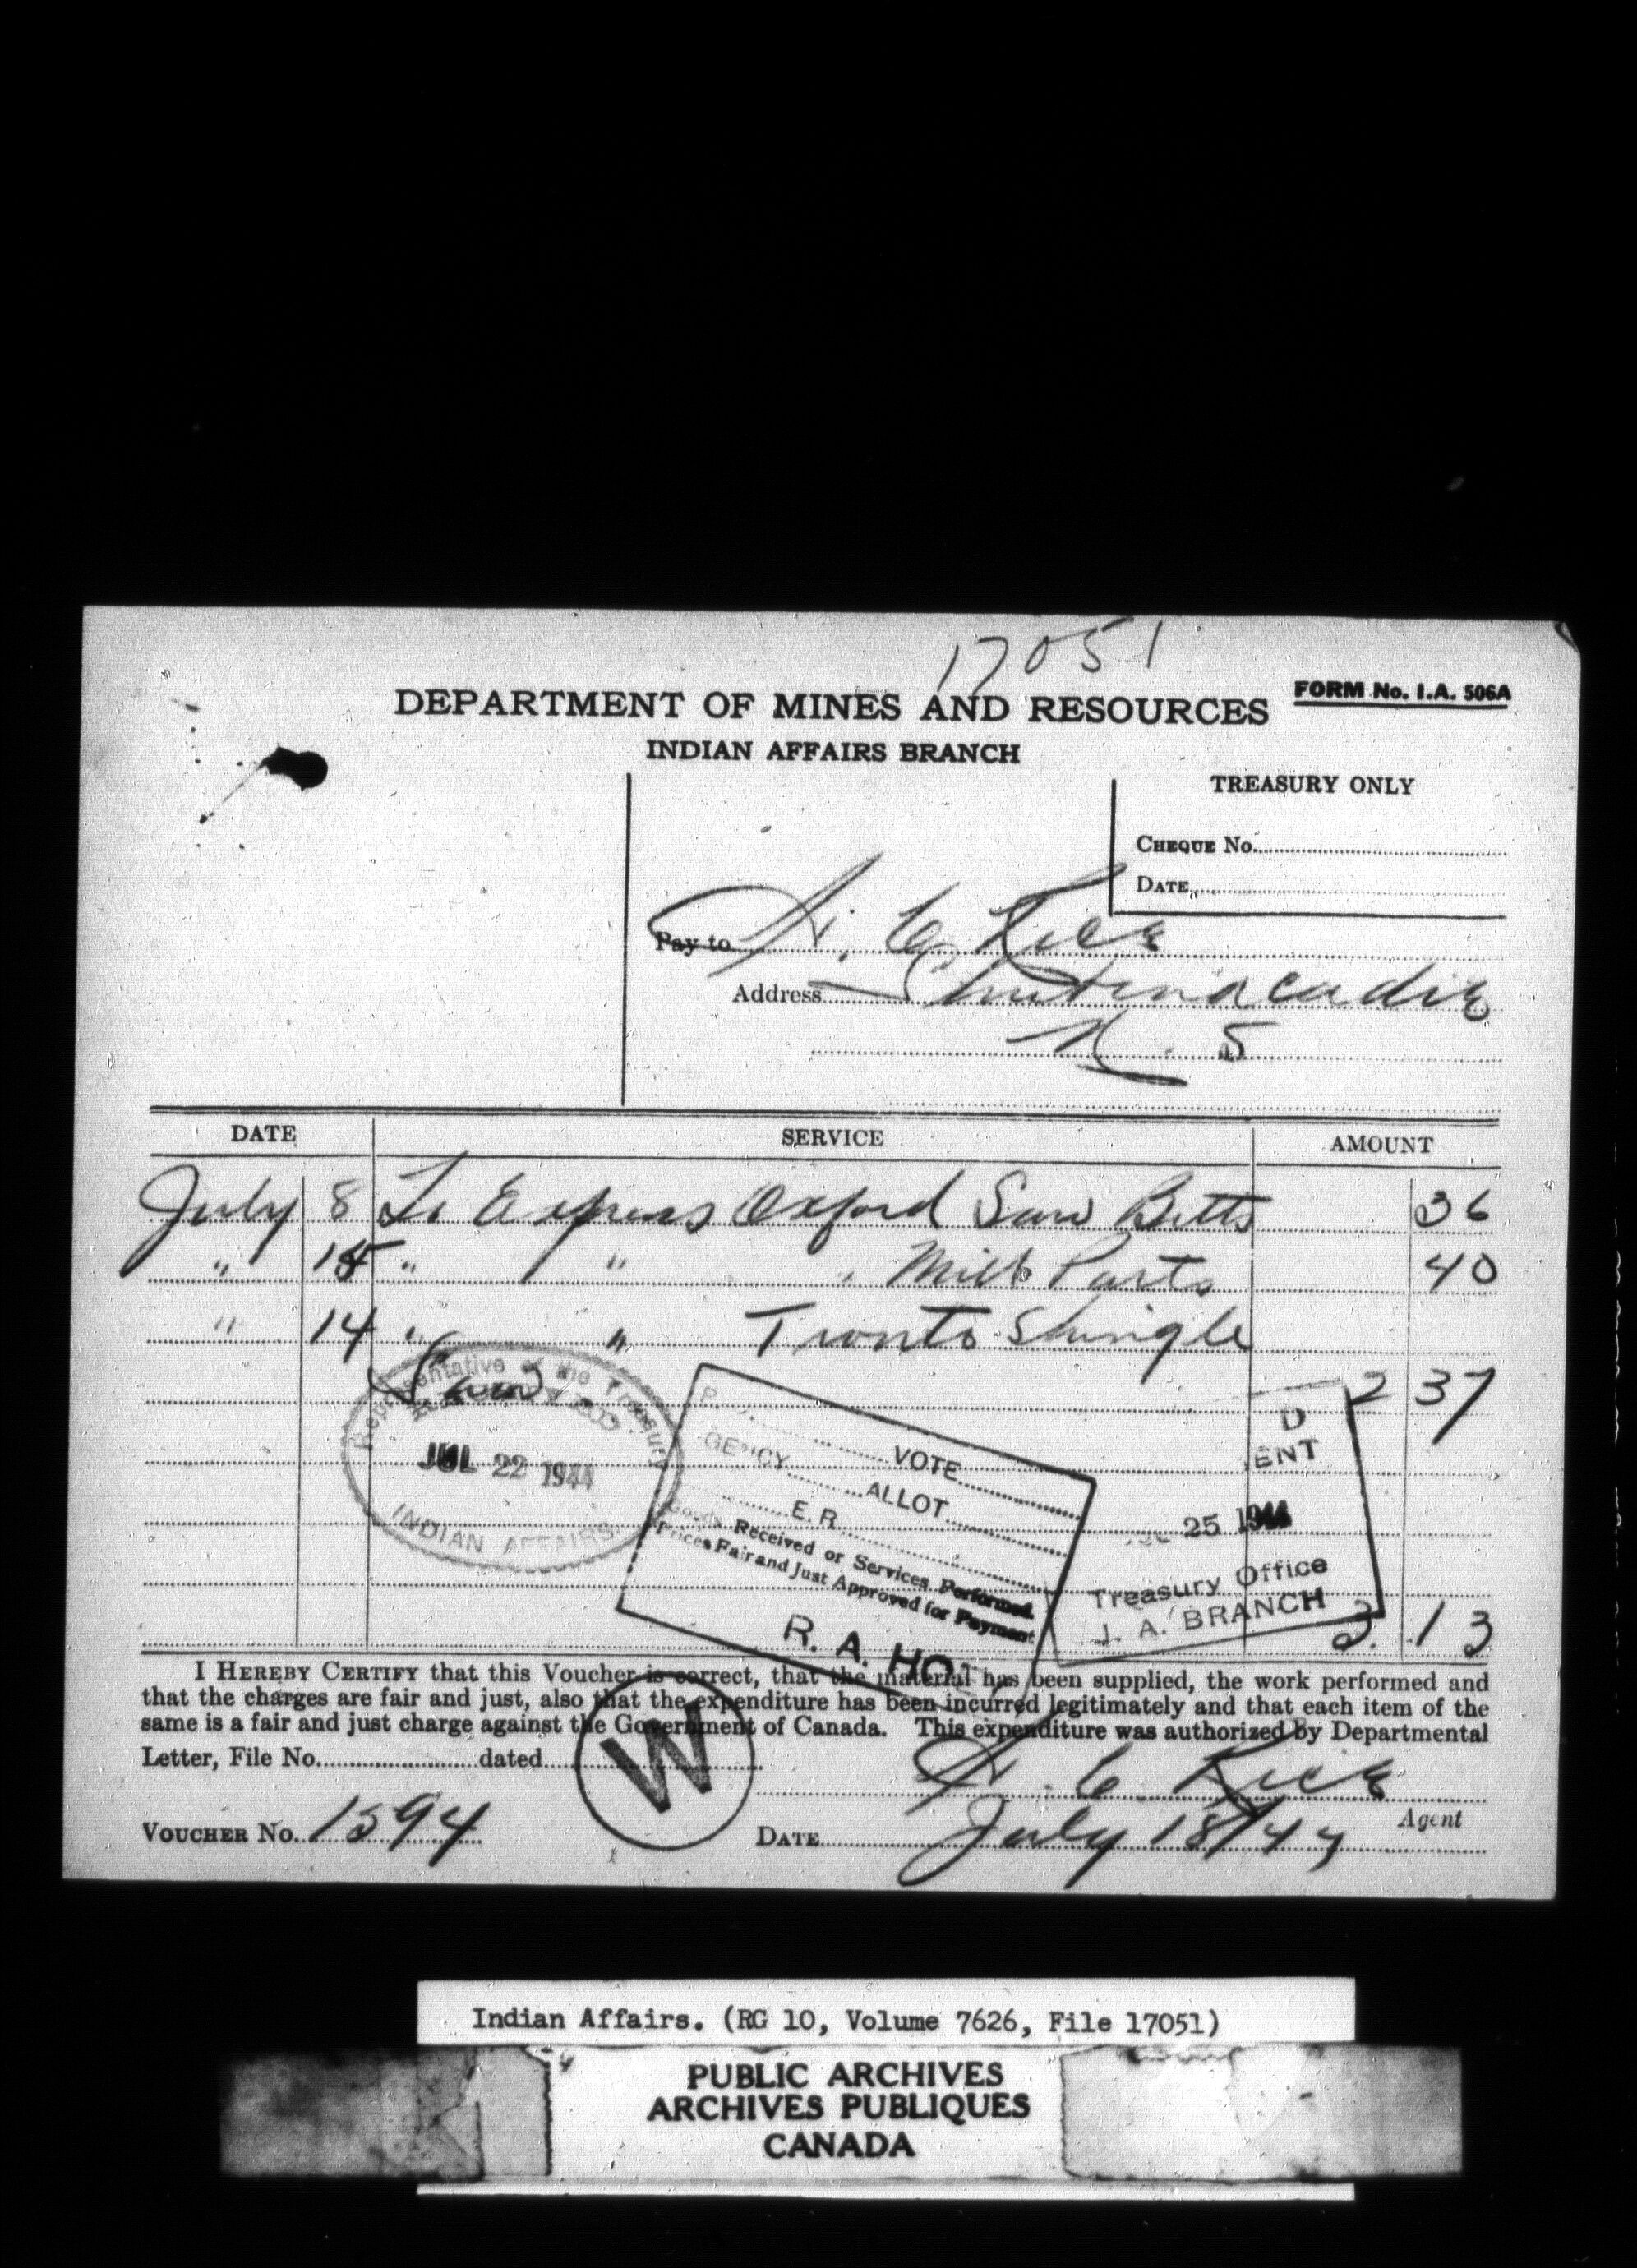 17051
DEPARTMENT OF MINES AND RESOURCES
FORM No. I.A. 506A
INDIAN AFFAIRS BRANCH
TREASURY ONLY
CHEQUE No.
DATE
Pay to H. C. Rice
Address Shubenacadie
N. S
DATE SERVICE AMOUNT
July 8 To Express Oxford Saw Betts 36
" 15 " " " Mill Parts 40
" 14 " " Tronto Shingle
(saw) 2 37
Representative of the Treasury
JUL 22 1944
INDIAN AFFAIRS
VOTE
GENCY ALLOT
E. R.
Goods Received or Services Performed.
Prices Fair and Just Approved for Payment
R. A. HO
D
ENT
25 1944
Treasury Office
I. A. BRANCH
3. 13
I HEREBY CERTIFY that this Voucher is correct, that the material has been supplied, the work performed and
that the charges are fair and just, also that the expenditure has been incurred legitimately and that each item of the
same is a fair and just charge against the Government of Canada. This expenditure was authorized by Departmental
Letter, File No. dated
W
H. C. Rice
Agent
VOUCHER No. 1594 DATE July 18/44
Indian Affairs. (RG 10, Volume 7626, File 17051)
PUBLIC ARCHIVES
ARCHIVES PUBLIQUES
CANADA